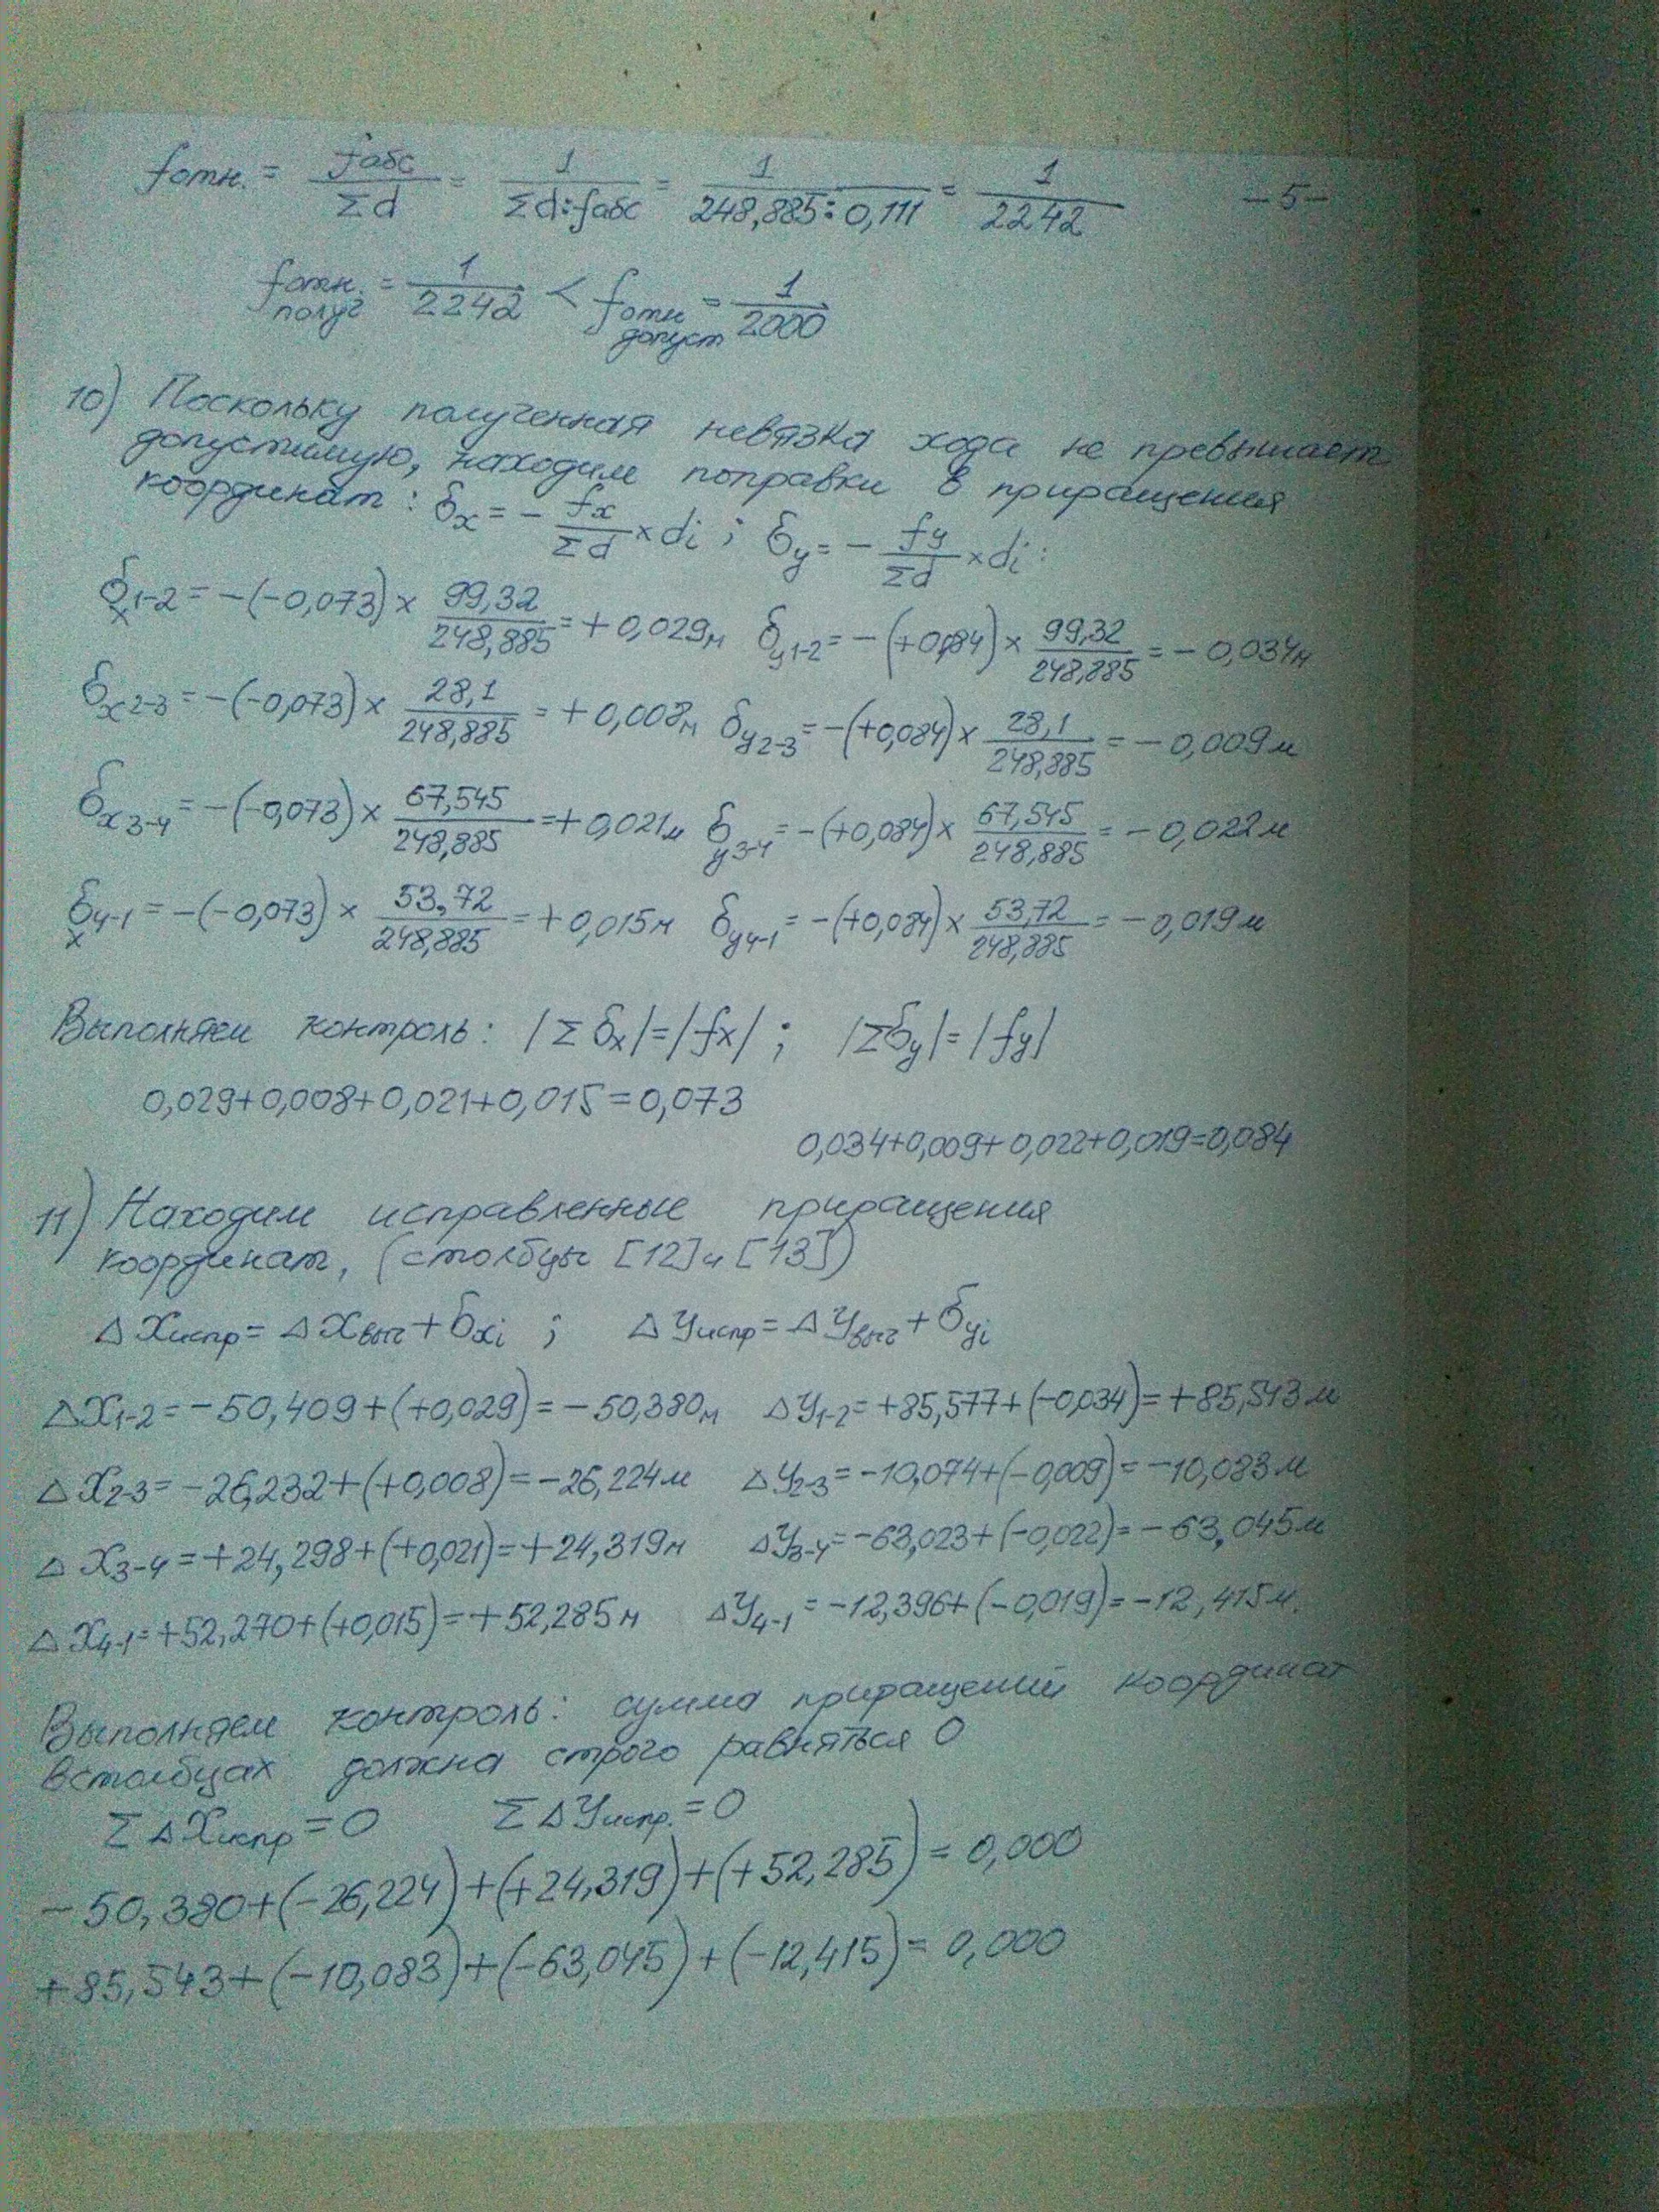 fотн. = fабс / Σd = 1 / Σd:fабс = 1 / 248,885:0,111 = 1 / 2242 -5-
fотн. получ = 1 / 2242 < fотн допуст = 1 / 2000
10) Поскольку полученная невязка хода не превышает
допустимую, находим поправки в приращения
координат: δx = - fx / Σd × di ; δy = - fy / Σd × di :
δx1-2 = -(-0,073) × 99,32 / 248,885 = +0,029м δy1-2 = -(+0,084) × 99,32 / 248,885 = -0,034м
δx2-3 = -(-0,073) × 28,1 / 248,885 = +0,008м δy2-3 = -(+0,084) × 28,1 / 248,885 = -0,009м
δx3-4 = -(-0,073) × 67,545 / 248,885 = +0,021м δy3-4 = -(+0,084) × 67,545 / 248,885 = -0,022м
δx4-1 = -(-0,073) × 53,72 / 248,885 = +0,015м δy4-1 = -(+0,084) × 53,72 / 248,885 = -0,019м
Выполняем контроль: |Σδx|=|fx| ; |Σδy|=|fy|
0,029+0,008+0,021+0,015=0,073
0,034+0,009+0,022+0,019=0,084
11) Находим исправленные приращения
координат, (столбцы [12] и [13])
ΔXиспр = ΔXвыч + δxi ; ΔYиспр = ΔYвыч + δyi
ΔX1-2 = -50,409+(+0,029) = -50,380м ΔY1-2 = +85,577+(-0,034) = +85,543м
ΔX2-3 = -26,232+(+0,008) = -26,224м ΔY2-3 = -10,074+(-0,009) = -10,083м
ΔX3-4 = +24,298+(+0,021) = +24,319м ΔY3-4 = -63,023+(-0,022) = -63,045м
ΔX4-1 = +52,270+(+0,015) = +52,285м ΔY4-1 = -12,396+(-0,019) = -12,415м.
Выполняем контроль: сумма приращений координат
в столбцах должна строго равняться 0
ΣΔXиспр = 0 ΣΔYиспр. = 0
-50,380+(-26,224)+(+24,319)+(+52,285) = 0,000
+85,543+(-10,083)+(-63,045)+(-12,415) = 0,000